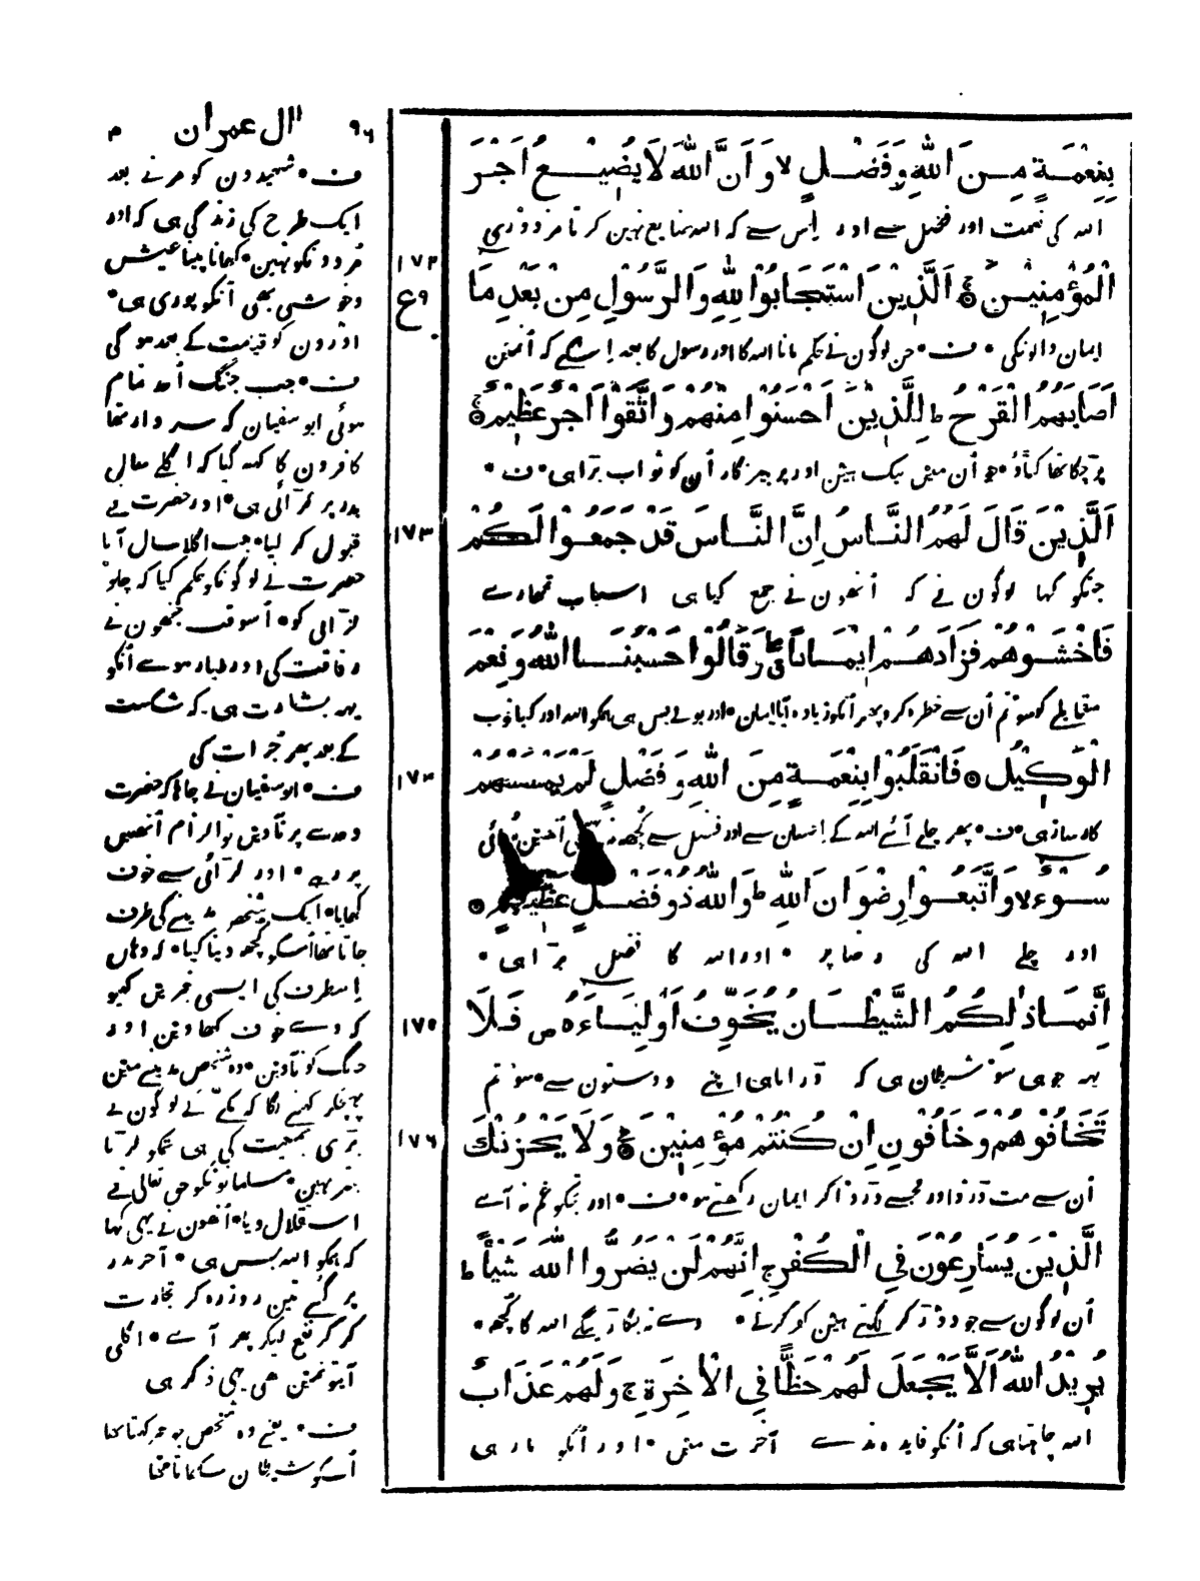 ۹۶ اٰل عمران ۳
بِنِعْمَةٍ مِنَ اللهِ وَفَضْلٍ لا وَ اَنَّ اللهَ لَا یُضِیْعُ اَجْرَ
الله کی نعمت اور فضل سے اور اِس سے که الله ضایع نہین کرتا مزدوری
۱۷۲ الْمُؤْمِنِیْنَ اَلَّذِیْنَ اسْتَجَابُوْا لِلهِ وَالرَّسُوْلِ مِنْ بَعْدِ مَا
ع ۹
ایمان والونکی * ف * جن لوگون نے حکم مانا الله کا اور رسول کا بعد اِسکے که اُنمین
اَصَابَهُمُ الْقَرْحُ ط لِلَّذِیْنَ اَحْسَنُوْا مِنْهُمْ وَاتَّقَوْا اَجْرٌ عَظِیْمٌ
پڑ چکا تھا کھاؤ * جو اُن مین نیک ہین اور پرہیزگار اُن کو ثواب بڑا ہی * ف *
۱۷۳ اَلَّذِیْنَ قَالَ لَهُمُ النَّاسُ اِنَّ النَّاسَ قَدْ جَمَعُوْا لَكُمْ
جنکو کہا لوگون نے که اُنھون نے جمع کیا ہی اسباب تمھارے
فَاخْشَوْهُمْ فَزَادَهُمْ اِیْمَانًا ق وَقَالُوْا حَسْبُنَا اللهُ وَنِعْمَ
مقابلے کو سو تم اُن سے خطره کرو پھر اُنکو زیاده آیا ایمان * اور بولے بس ہی ہمکو الله اور کیا خوب
۱۷۴ الْوَكِیْلُ فَانْقَلَبُوْا بِنِعْمَةٍ مِنَ اللهِ وَ فَضْلٍ لَمْ یَمْسَسْهُمْ
کارساز ہی * ف * پھر چلے آئے الله کے اِحسان سے اور فضل سے کچھ نه اُنھین بُرائی
سُوْءٌ لا وَاتَّبَعُوْا رِضْوَانَ اللهِ ط وَاللهُ ذُوْ فَضْلٍ عَظِیْمٍ
اور چلے الله کی رضا پر * اور الله کا فضل بڑا ہی *
۱۷۵ اِنَّمَا ذٰلِكُمُ الشَّیْطَانُ یُخَوِّفُ اَوْلِیَاءَهُ ص فَلَا
یہ جو ہی سو شیطان ہی که ڈراتا ہی اپنے دوستون سے * سو تم
۱۷۶ تَخَافُوْهُمْ وَخَافُوْنِ اِنْ كُنْتُمْ مُؤْمِنِیْنَ وَلَا یَحْزُنْكَ
اُن سے مت ڈرو اور مجھسے ڈرو اگر ایمان رکھتے ہو * ف * اور تجکو غم نه آے
الَّذِیْنَ یُسَارِعُوْنَ فِی الْكُفْرِ ج اِنَّهُمْ لَنْ یَضُرُّوا اللهَ شَیْأً ط
اُن لوگون سے جو دوڑ کر لگتے ہین کرنے * وے نه بگاڑینگے الله کا کچھ *
یُرِیْدُ اللهُ اَلَّا یَجْعَلَ لَهُمْ حَظًّا فِی الْاٰخِرَةِ ج وَلَهُمْ عَذَابٌ
الله چاہتا ہی که اُنکو فایده نه دے آخرت مین * اور اُنکو مار ہی
ف * شہیدون کو مرنے بعد
ایک طرح کی زندگی ہی که اور
مردونکو نہین * کھانا پینا عیش
و خوشی بھی اُنکو پوری ہی *
اورون کو قیامت کے بعد ہوگی
ف * جب جنگ اُحد تمام
ہوئی ابو سفیان که سردار تھا
کافرون کا کہہ گیا که اگلے سال
بدر پر لڑائی ہی * اور حضرت نے
قبول کر لیا * جب اگلا سال آیا
حضرت نے لوگونکو حکم کیا که چلو
لڑائی کو * اُسوقت جنھون نے
رفاقت کی اور طیار ہوے اُنکو
یہ بشارت ہی که شکست
کے بعد پھر جُرات کی
ف * ابو سفیان نے چاہا که حضرت
وعدے پر نآوین تو الزام اُنھین
پر رہے * اور لڑائی سے خوف
کھایا * ایک شخص مدینے کی طرف
جاتا تھا اُسکو کچھ دینا کیا * که وہان
اِسطرف کی ایسی خبرین کہیو
که وے خوف کھاوین اور
جنگ کو نآوین * وه شخص مدینے مین
پہنچکر کہنے لگا که مکّے کے لوگون نے
بڑی جمعیت کی ہی تمکو لڑنا
بہتر نہین * مسلمانونکو حق تعالی نے
استقلال دیا * اُنھون نے یہی کہا
که ہمکو الله بس ہی * آخر بدر
پر گئے تین روز ره کر تجارت
کر کر نفع لیکر پھر آے * اگلی
آیتونمین بھی یہی ذکر ہی
ف * یعنے وه شخص جو کہتا تھا
اُسکو شیطان سکھاتا تھا